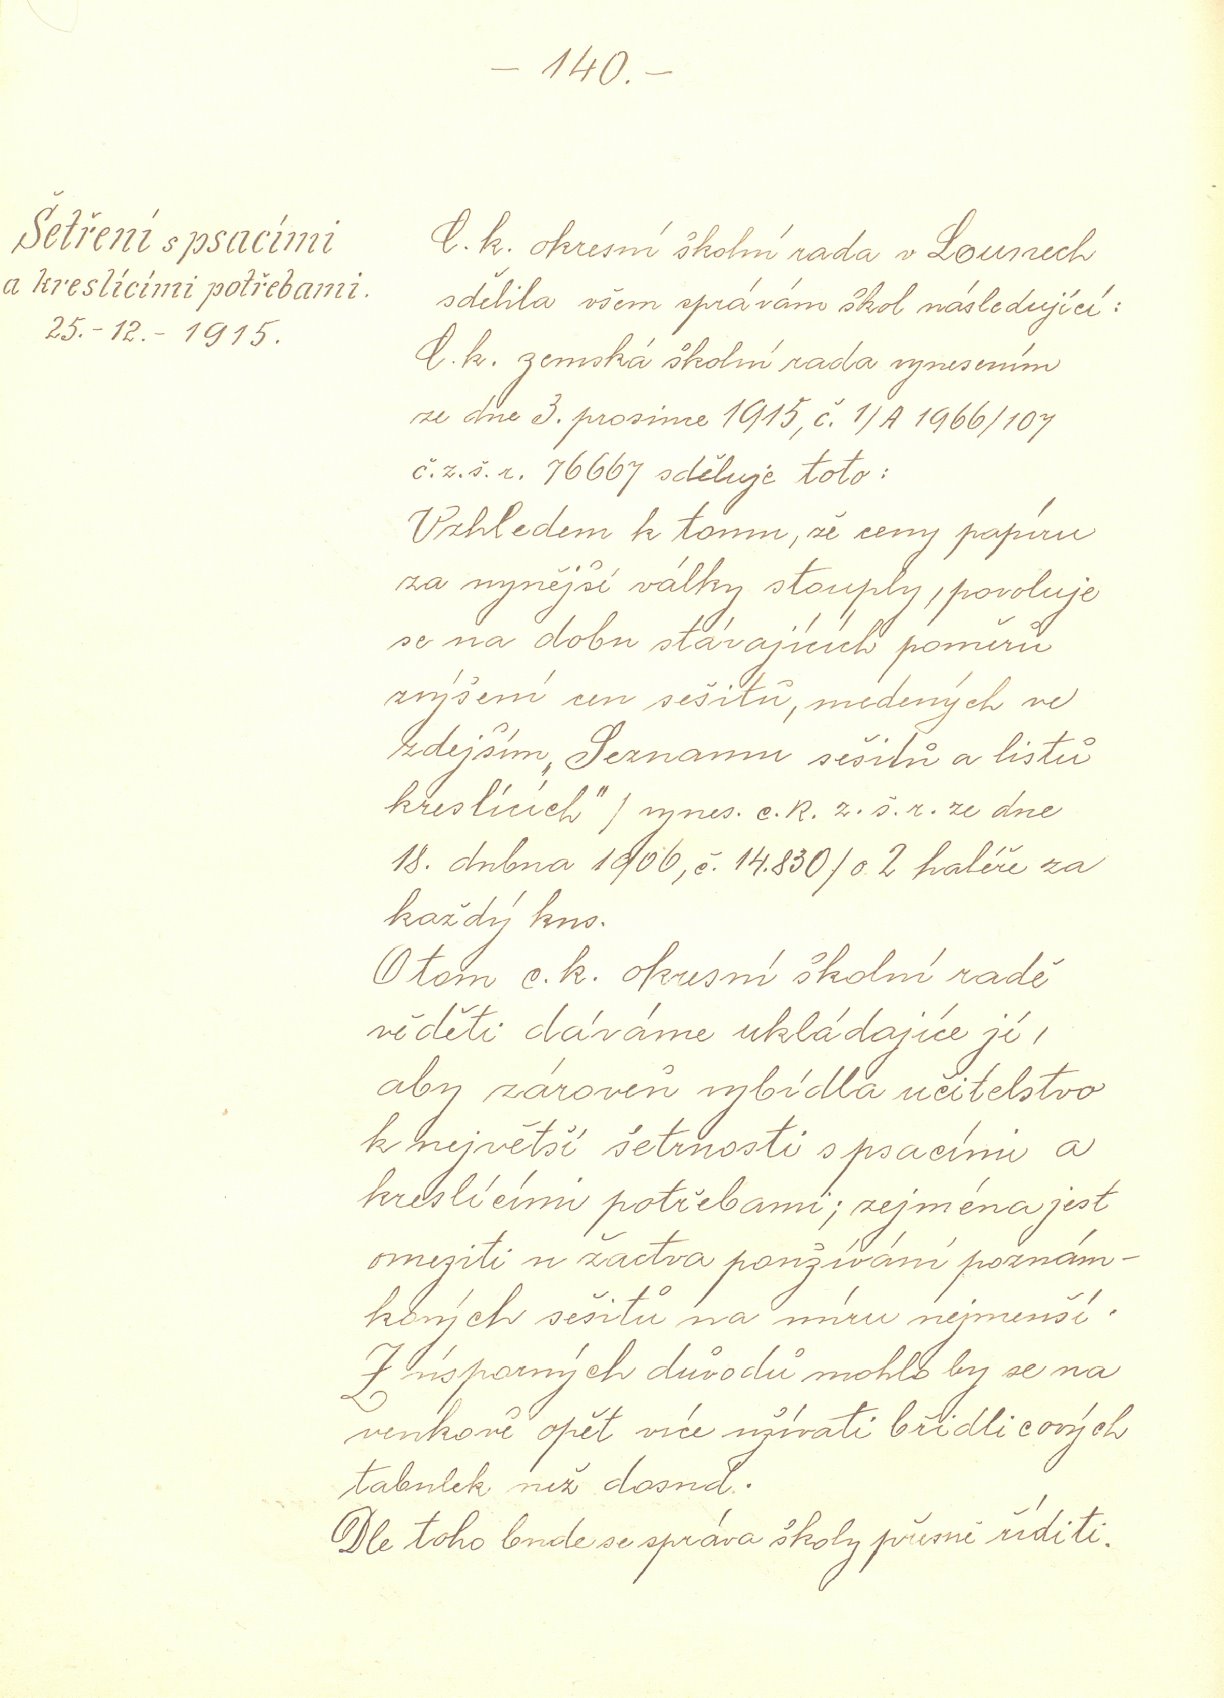 — 140. —
Šetření s psacími
a kreslícími potřebami.
25. - 12. - 1915.
C. k. okresní školní rada v Lounech
sdělila všem správám škol následující:
C. k. zemská školní rada vynesením
ze dne 3. prosince 1915, č. 1/A 1966/107
č. z. š. r. 76667 sděluje toto:
Vzhledem k tomu, že ceny papíru
za nynější války stouply, povoluje
se na dobu stávajících poměrů
zvýšení cen sešitů, uvedených ve
zdejším „Seznamu sešitů a listů
kreslících" / vynes. c. k. z. š. r. ze dne
18. dubna 1906, č. 14.830 / o 2 haléře za
každý kus.
O tom c. k. okresní školní radě
věděti dáváme ukládajíce jí,
aby zároveň vybídla učitelstvo
k největší šetrnosti s psacími a
kreslícími potřebami; zejména jest
omeziti u žactva používání poznám-
kových sešitů na míru nejmenší.
Z úsporných důvodů mohlo by se na
venkově opět více užívati břidlicových
tabulek než dosud.
Dle toho bude se správa školy přesně říditi.